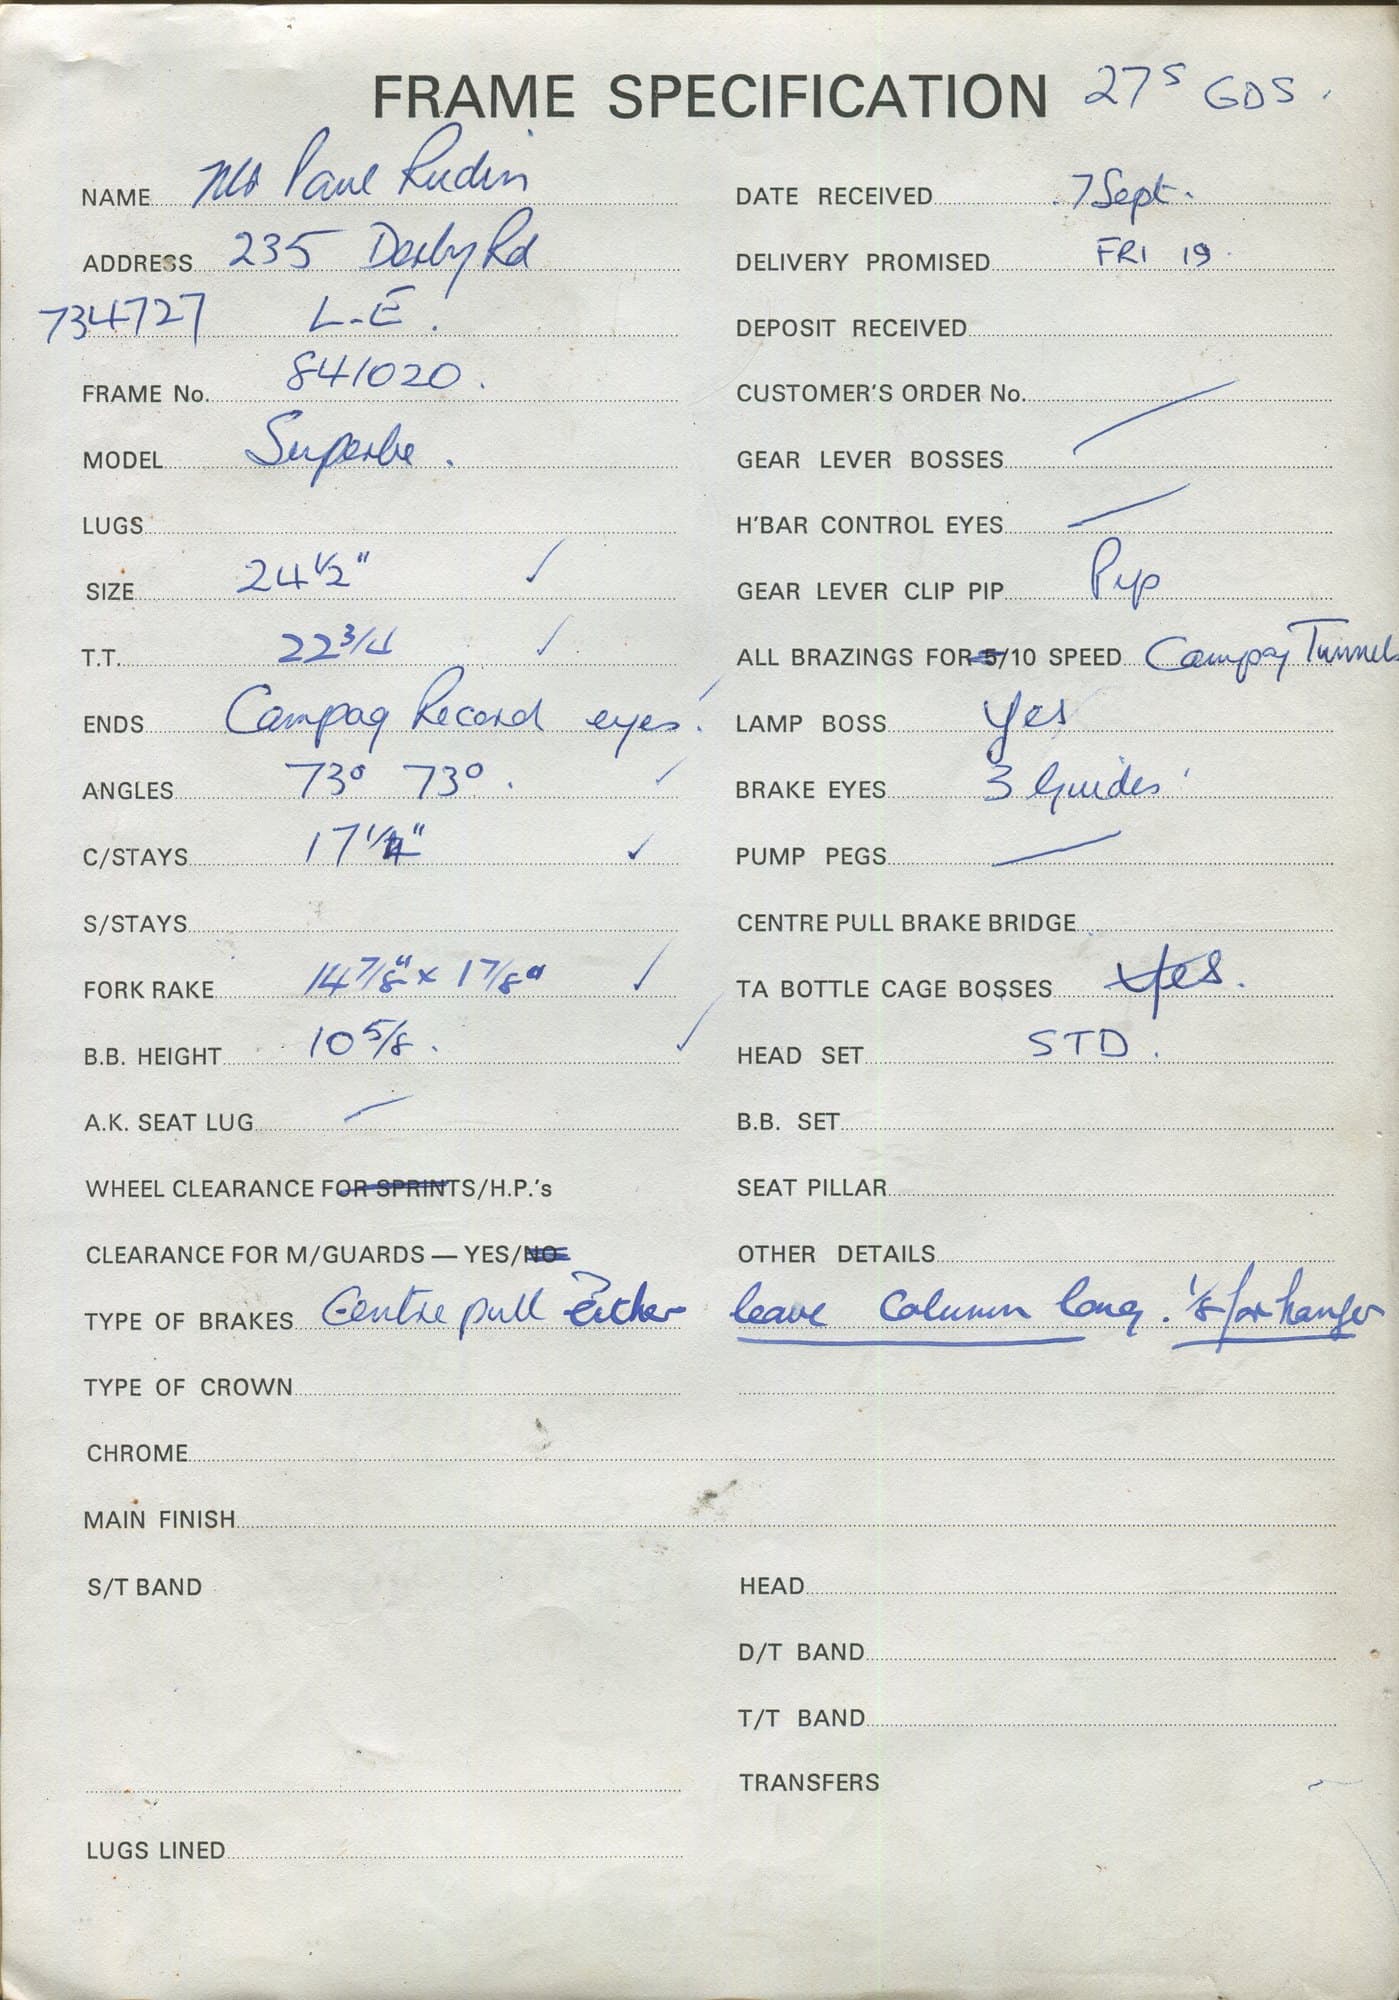 FRAME SPECIFICATION 27S GDS.
NAME Mr Paul Rudin
ADDRESS 235 Derby Rd
734727 L-E.
FRAME No. 841020.
MODEL Superbe.
LUGS
SIZE 24 1/2" ✓
T.T. 22 3/4 ✓
ENDS Campag Record eyes. ✓
ANGLES 73° 73°. ✓
C/STAYS 17 1/4" ✓
S/STAYS
FORK RAKE 14 7/8" x 1 7/8" ✓
B.B. HEIGHT 10 5/8. ✓
A.K. SEAT LUG
WHEEL CLEARANCE FOR SPRINTS/H.P.'s
CLEARANCE FOR M/GUARDS — YES/NO
TYPE OF BRAKES Centre pull either
TYPE OF CROWN
CHROME
MAIN FINISH
S/T BAND
LUGS LINED
DATE RECEIVED 7 Sept.
DELIVERY PROMISED FRI 19.
DEPOSIT RECEIVED
CUSTOMER'S ORDER No.
GEAR LEVER BOSSES
H'BAR CONTROL EYES
GEAR LEVER CLIP PIP Pip
ALL BRAZINGS FOR 5/10 SPEED Campag Tunnels
LAMP BOSS Yes
BRAKE EYES 3 Guides
PUMP PEGS
CENTRE PULL BRAKE BRIDGE
TA BOTTLE CAGE BOSSES Yes.
HEAD SET STD.
B.B. SET
SEAT PILLAR
OTHER DETAILS
leave column long. 1/8 for hanger
HEAD
D/T BAND
T/T BAND
TRANSFERS